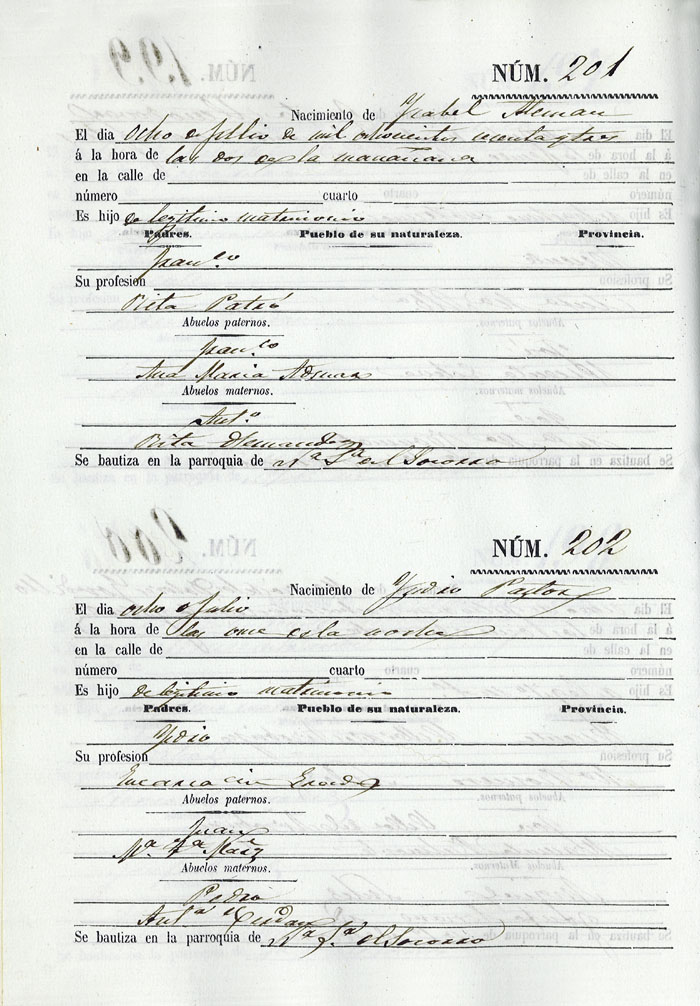 NÚM. 201
Nacimiento de Ysabel Aleman
El dia ocho de Julio de mil ochocientos
á la hora de las dos de la manañana
en la calle de
número cuarto
Es hijo de legitimo matrimonio
Padres. Pueblo de su naturaleza. Provincia.
Fran.co
Su profesion
Rita Pastó
Abuelos paternos.
Fran.co
Ana Maria
Abuelos maternos.
Ant.o
Rita Hernandez
Se bautiza en la parroquia de N.a S.a del Socorro
NÚM. 202
Nacimiento de Ysidro Pastor
El dia ocho de Julio
á la hora de las once de la noche
en la calle de
número cuarto
Es hijo de legitimo matrimonio
Padres. Pueblo de su naturaleza. Provincia.
Ysidro
Su profesion
Encarnacion
Abuelos paternos.
Juan
M.a
Abuelos maternos.
Pedro
Ant.a
Se bautiza en la parroquia de N.a S.a del Socorro